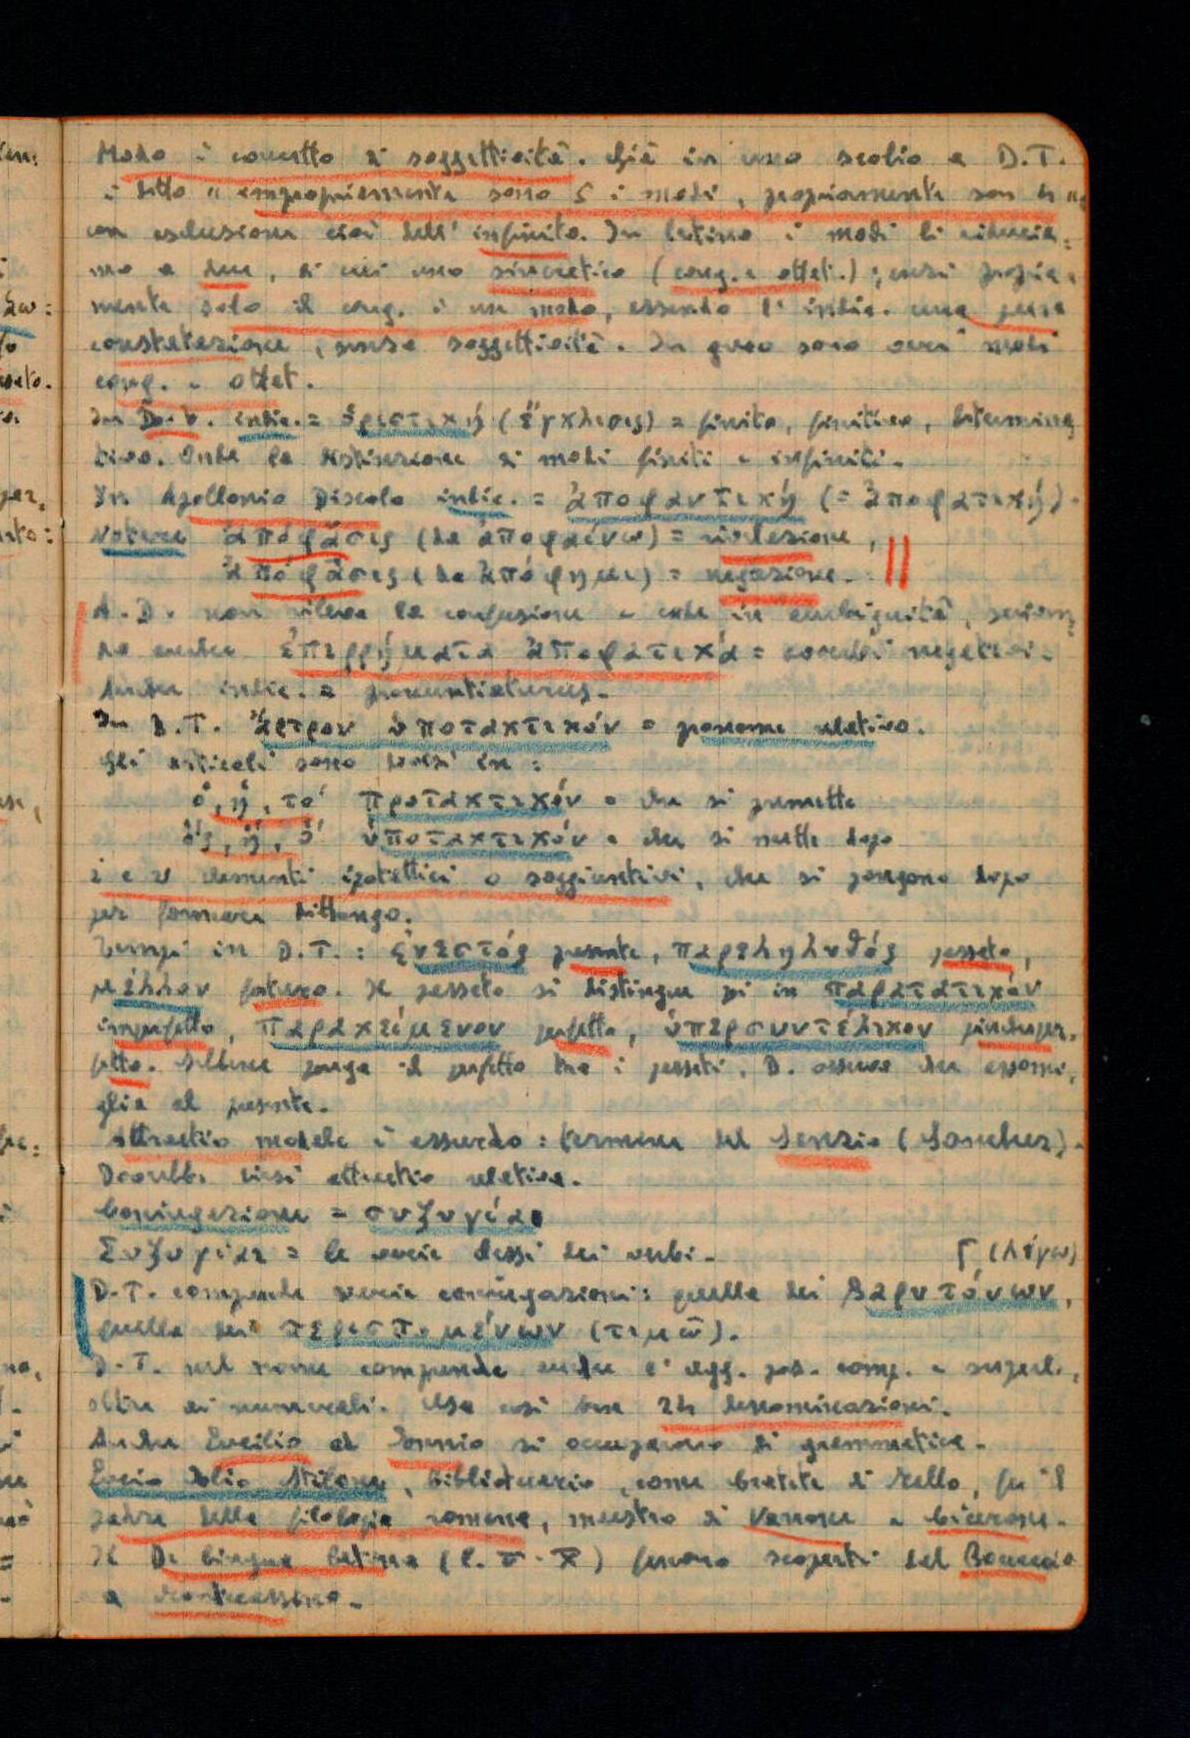 Modo è concetto di soggettività. Già in uno scolio a D.T.
è detto "impropriamente sono 5 i modi, propriamente son 4",
con esclusione cioè dell' infinito. In latino i modi li riducia=
mo a due, di cui uno sincretico (cong. e ottat.); anzi propria=
mente solo il cong. è un modo, essendo l' indic. una pura
constatazione, senza soggettività. In greco sono veri modi
cong. e ottat.
In indic. = ὁριστική (ἔγκλισις) = finito, finitivo, determina
tivo. Onde la distinzione di modi finiti e infiniti.
In Apollonio Discolo indic. = ἀποφαντική (= ἀποφατική).
Notare ἀπόφᾱσις (da ἀποφαίνω) = rivelazione,
ἀπόφᾰσις (da ἀπόφημι) = negazione.
A.D. non rileva la confusione e cade in ambiguità, scriven=
do anche ἐπιρρήματα ἀποφατικά = avverbi negativi.
Anche indic. = pronuntiativus.
In D.T. ἄρτρον ὑποτακτικόν = pronome relativo.
Gli articoli sono divisi in:
ὁ, ἡ, τό προτακτικόν = che si premette
ὅς, ἥ, ὅ ὑποτακτικόν = che si mette dopo
ι e υ elementi ipotattici o soggiuntivi, che si pongono dopo
per formare dittongo.
Tempi in D.T.: ἐνεστός presente, παρεληλυθός passato,
μέλλον futuro. Il passato si distingue poi in παρατατικόν
imperfetto, παρακείμενον perfetto, ὑπερσυντέλικον piucheper.
fetto. Sebbene ponga il perfetto tra i passati, D. osserva che assomi.
glia al presente.
Attractio modale è assurdo: termine del Sanzio (Sanchez).
Dovrebbe dirsi attractio relativa.
Coniugazione = συζυγία.
Συζυγίαι = le varie classi dei verbi. (λέγω)
D.T. comprende varie coniugazioni: quella dei βαρυτόνων,
quella dei περισπωμένων (τιμῶ).
D.T. nel nome comprende anche l' agg. pos. comp. e superl.,
oltre ai numerali. Usa così ben 24 denominazioni.
Anche Lucilio ed Ennio si occuparono di grammatica.
Lucio Elio Stilone, bibliotecario, come Cratete di Mallo, fu il
padre della filologia romana, maestro di Varrone e Cicerone.
Il De lingua latina (l. V-X) furono scoperti dal Boccaccio
a Montecassino.